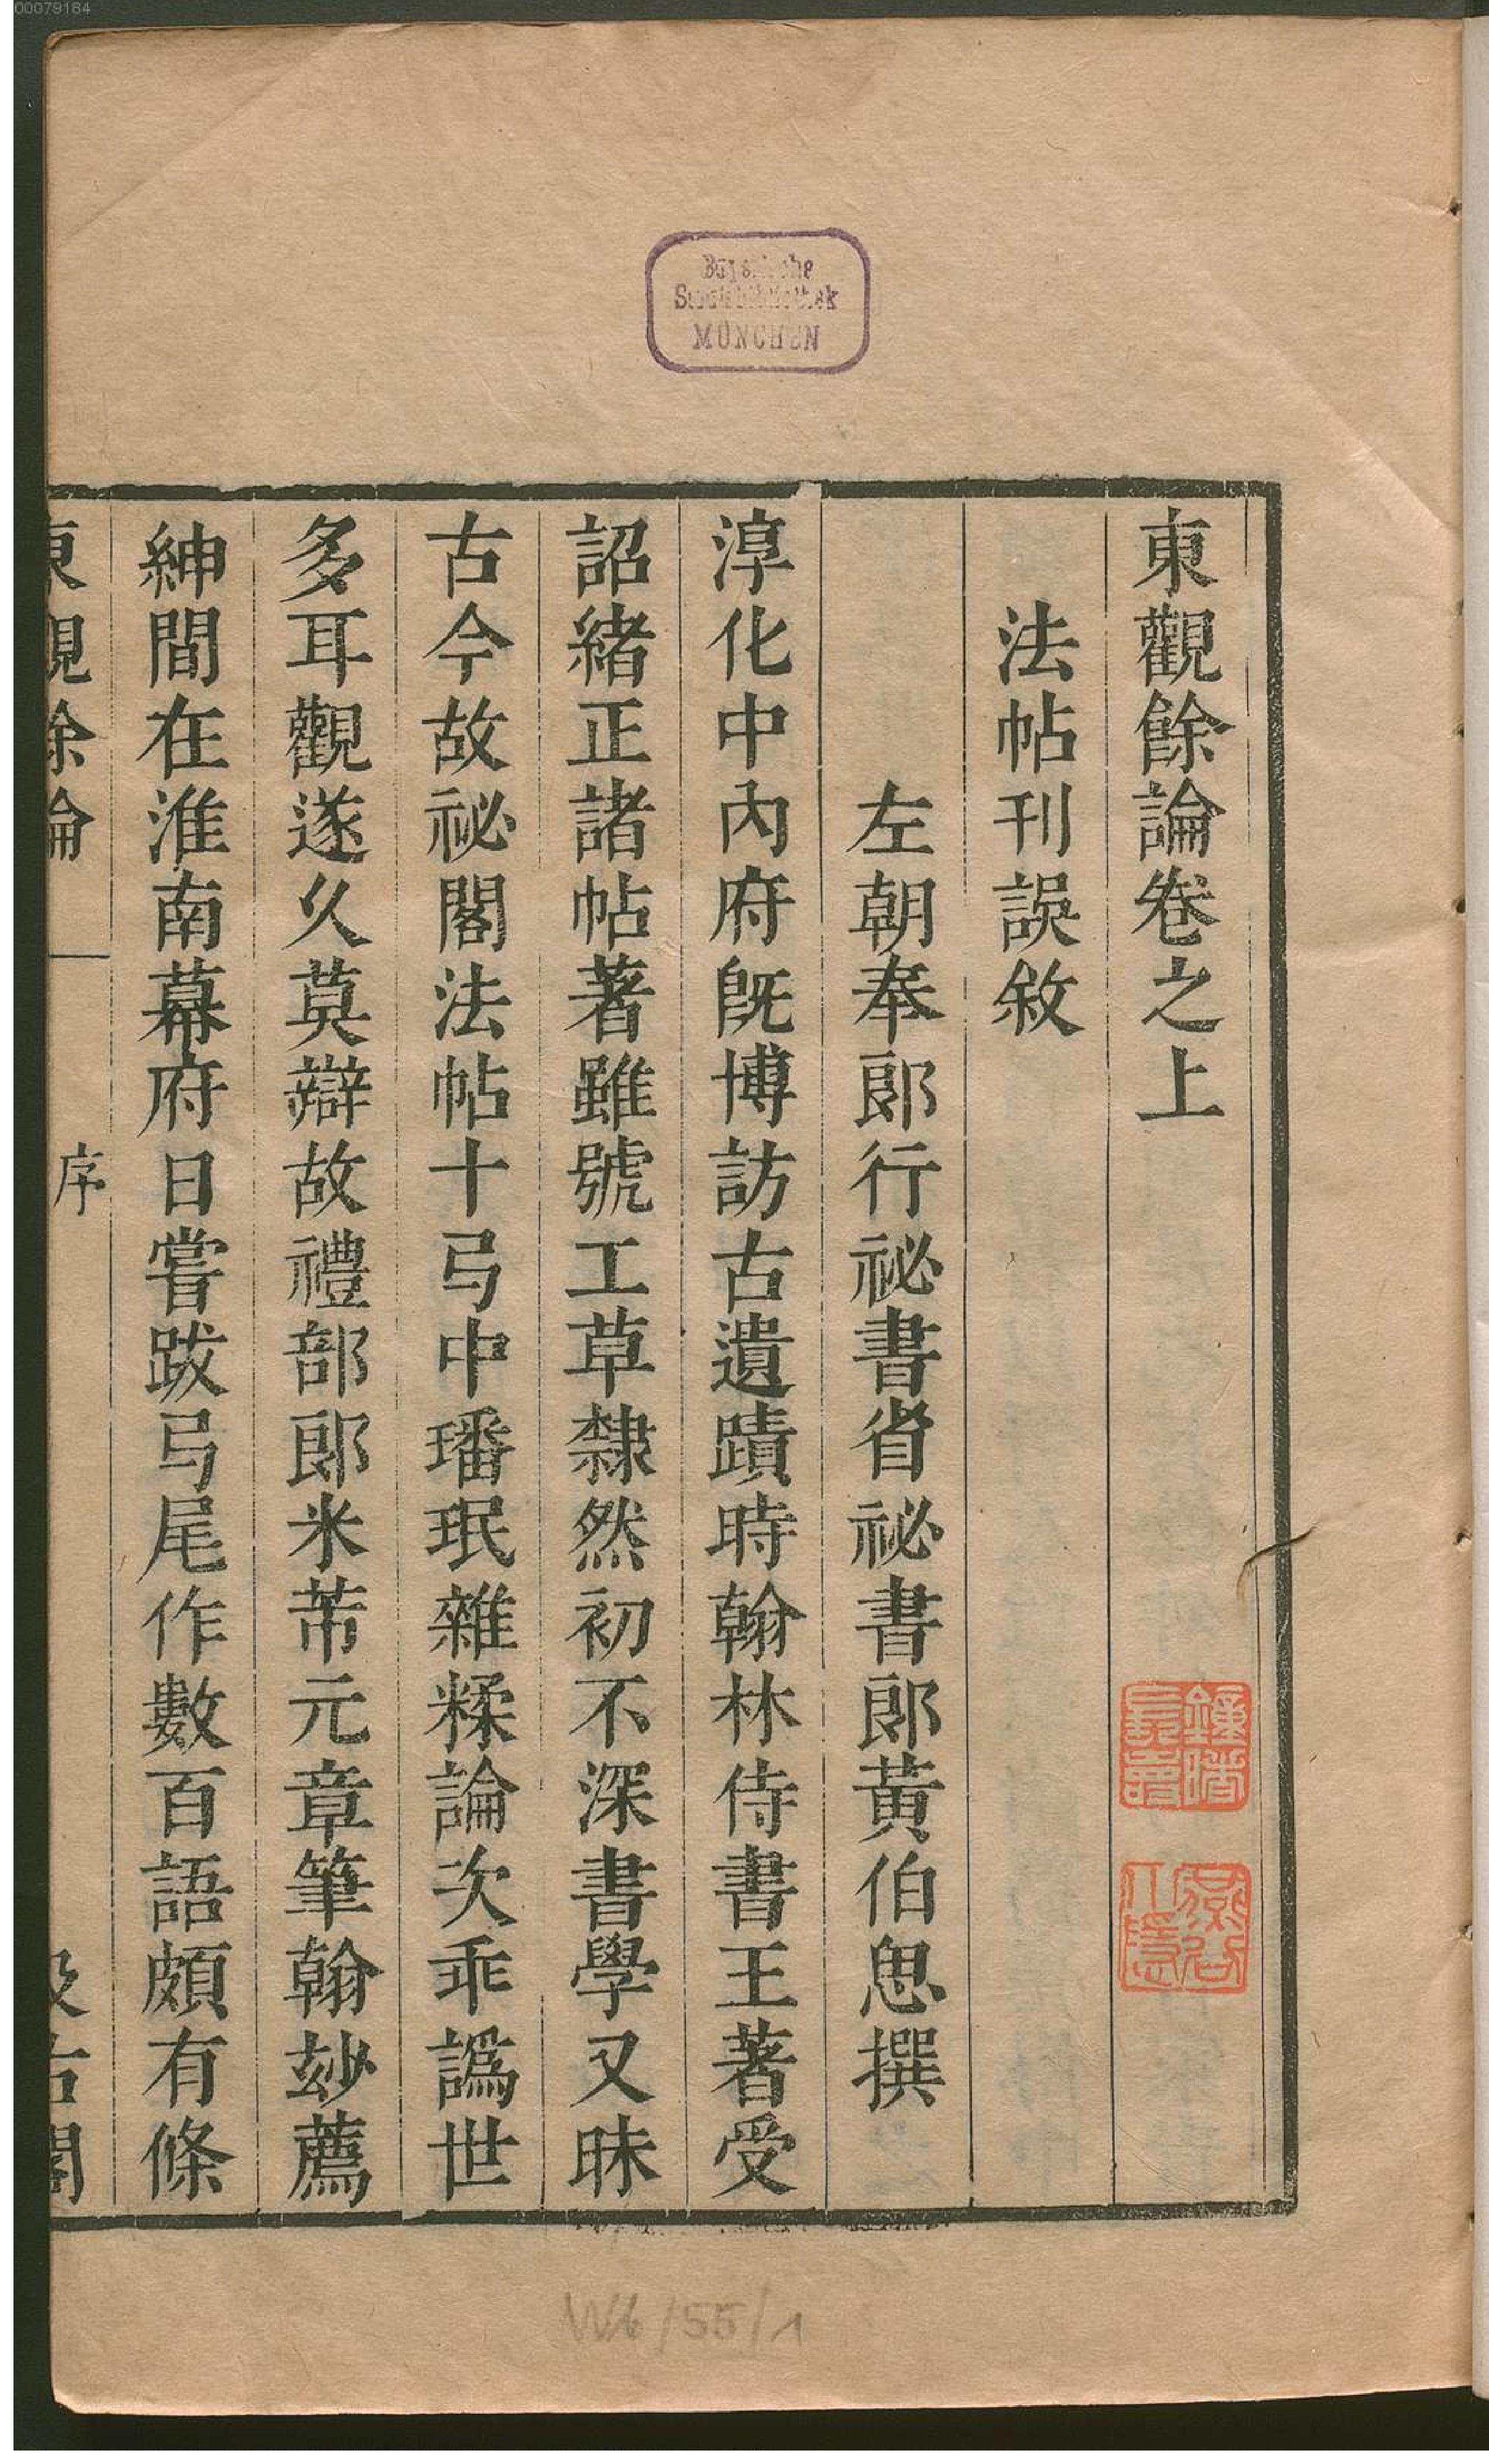 00079184
Bayerische
Staatsbibliothek
MÜNCHEN
東觀餘論卷之上
法帖刊誤敘
左朝奉郎行祕書省祕書郎黃伯思撰
淳化中內府旣博訪古遺蹟時翰林侍書王著受
詔緒正諸帖著雖號工草隸然初不深書學又昧
古今故祕閣法帖十弓中璠珉雜糅論次乖譌世
多耳觀遂久莫辯故禮部郎米芾元章筆翰玅薦
紳間在淮南幕府日嘗跋弓尾作數百語頗有條
東觀餘論
序
汲古閣
W6/55/1